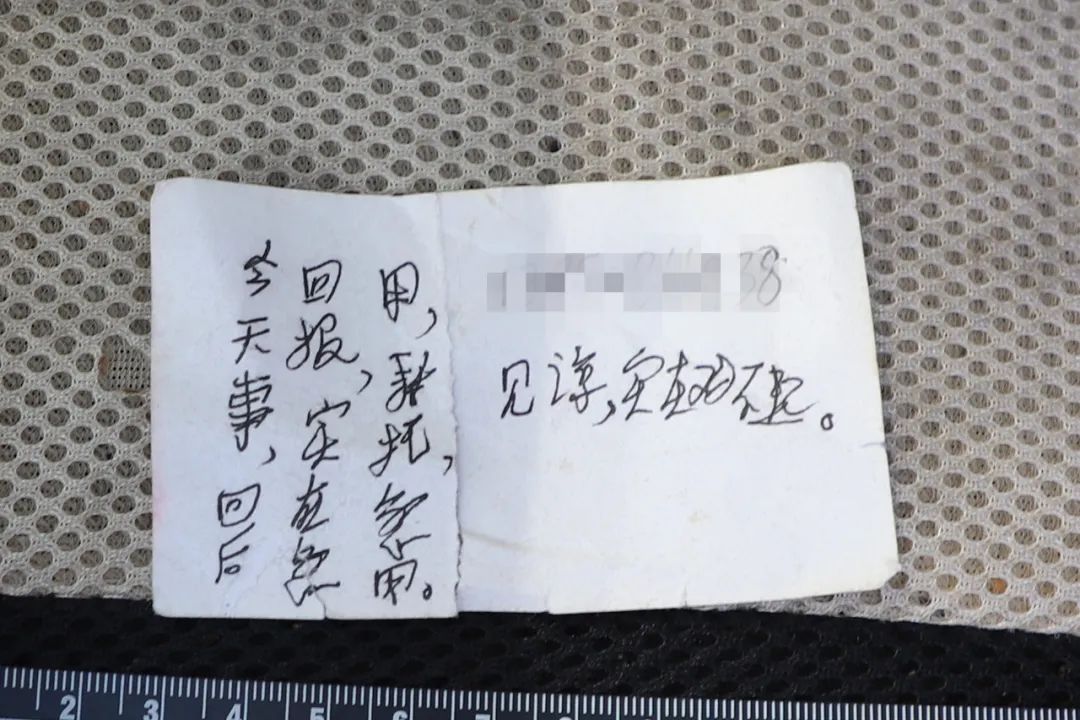 今天事,回后
回报,实在急
用,拜托,急用。
38
见谅,实在对不起。
2 3 4 5